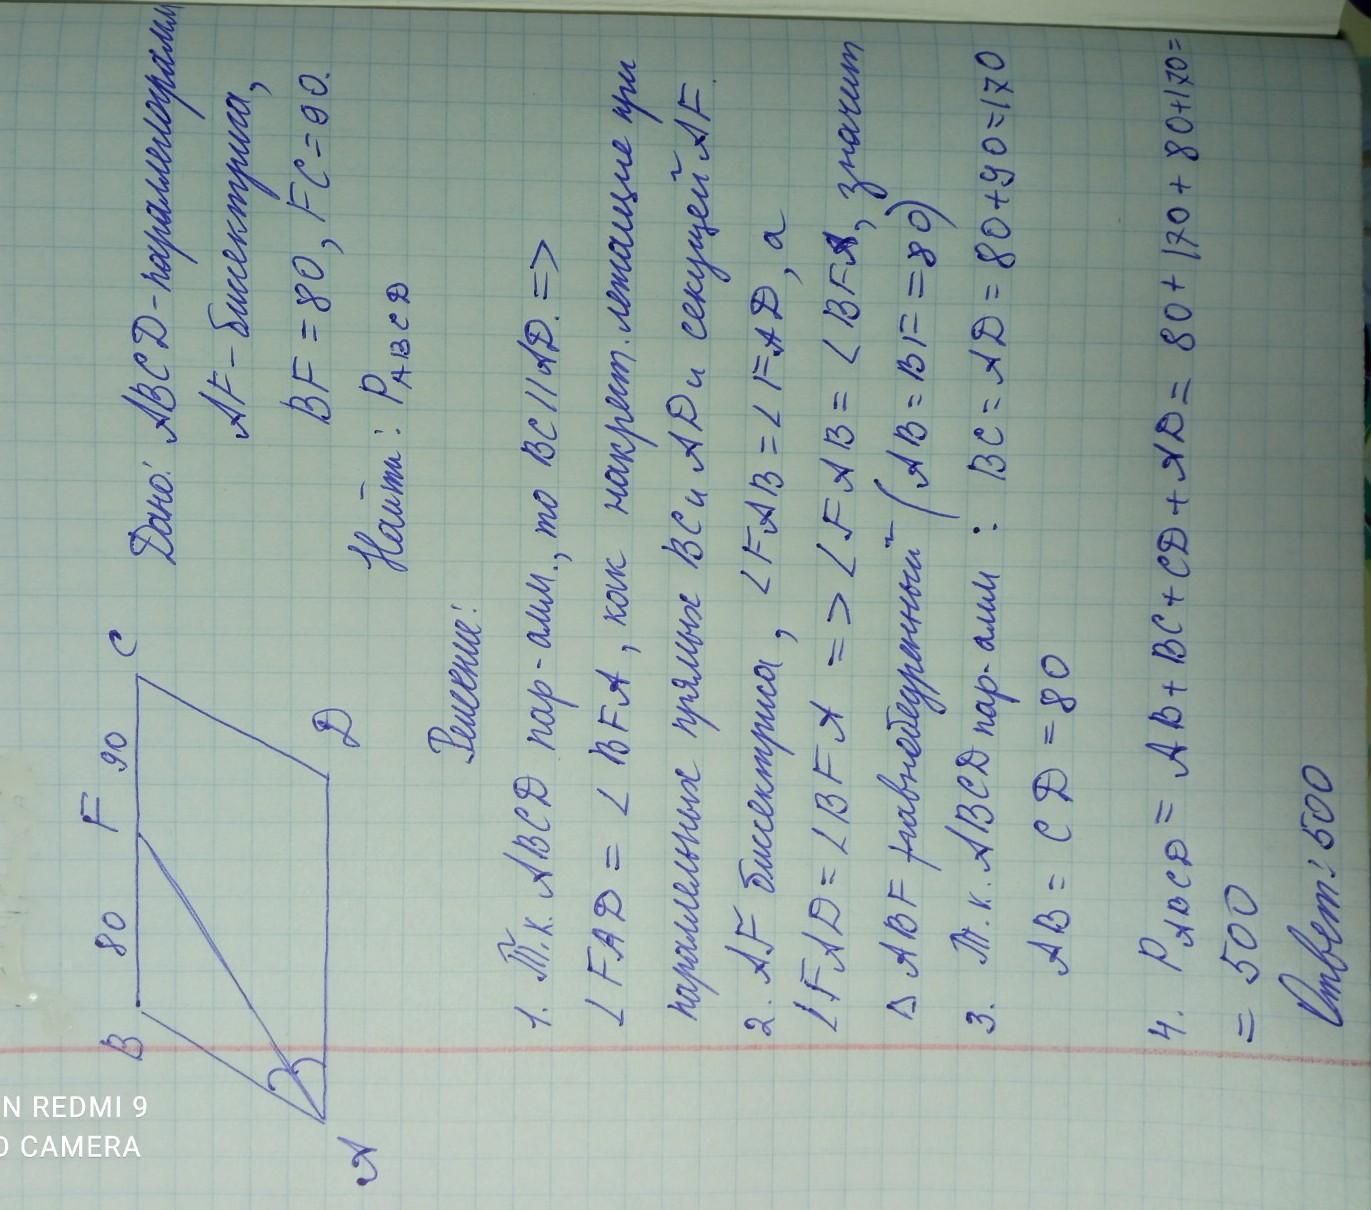 B 80 F 90 C
A D
Дано: ABCD - параллелограмм
AF - биссектриса,
BF = 80, FC = 90.
Найти: P ABCD
Решение:
1. Т.к. ABCD пар-амм., то BC || AD. =>
∠FAD = ∠BFA, как накрест. лежащие при
параллельных прямых BC и AD и секущей AF.
2. AF биссектриса, ∠FAB = ∠FAD, а
∠FAD = ∠BFA => ∠FAB = ∠BFA, значит
Δ ABF равнобедренный (AB = BF = 80)
3. Т.к. ABCD пар-амм : BC = AD = 80+90=170
AB = CD = 80
4. P ABCD = AB + BC + CD + AD = 80 + 170 + 80 + 170 =
= 500
Ответ: 500
N REDMI 9
CAMERA